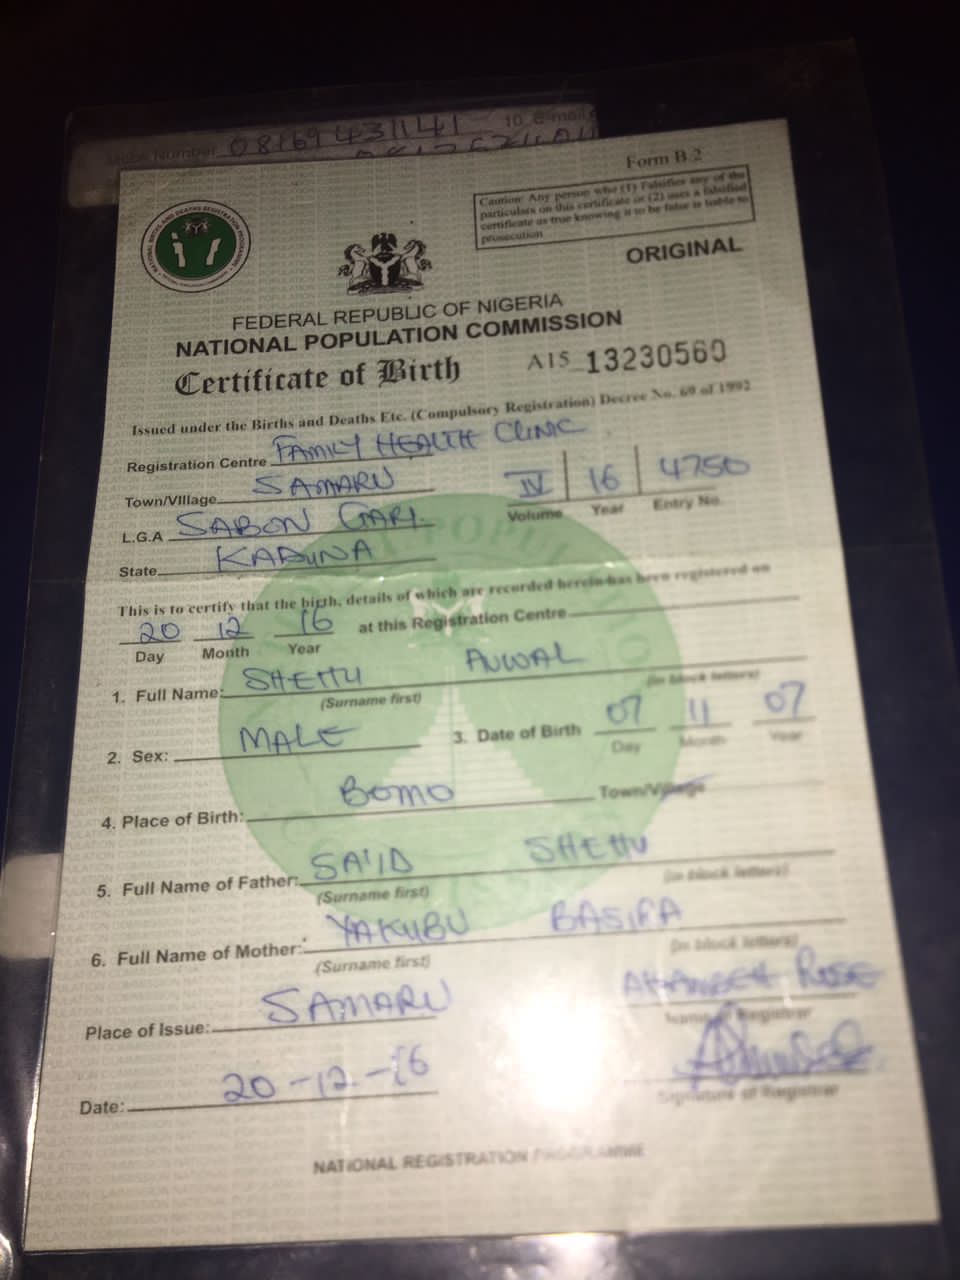 Number 08169431141 10. E-mail
Form B.2
Caution: Any person who (1) Falsifies any of the
particulars on this certificate or (2) uses a falsified
certificate as true knowing it to be false is liable to
prosecution
NATIONAL BIRTHS AND DEATHS REGISTRATION PROGRAMME
ORIGINAL
FEDERAL REPUBLIC OF NIGERIA
NATIONAL POPULATION COMMISSION
Certificate of Birth A15 13230560
Issued under the Births and Deaths Etc. (Compulsory Registration) Decree No. 69 of 1992
Registration Centre FAMILY HEALTH CLINIC
Town/Village SAMARU IV 16 4750
Volume Year Entry No.
L.G.A SABON GARI
State KADUNA
This is to certify that the birth, details of which are recorded herein has been registered on
20 12 16 at this Registration Centre
Day Month Year
1. Full Name: SHEHU AUWAL
(Surname first) (in block letters)
2. Sex: MALE 3. Date of Birth 07 11 07
Day Month Year
4. Place of Birth: BOMO Town/Village
5. Full Name of Father: SA'ID SHEHU
(Surname first) (in block letters)
6. Full Name of Mother: YAKUBU BASIRA
(Surname first) (in block letters)
Place of Issue: SAMARU ROSE
Name of Registrar
Date: 20-12-16
Signature of Registrar
NATIONAL REGISTRATION PROGRAMME